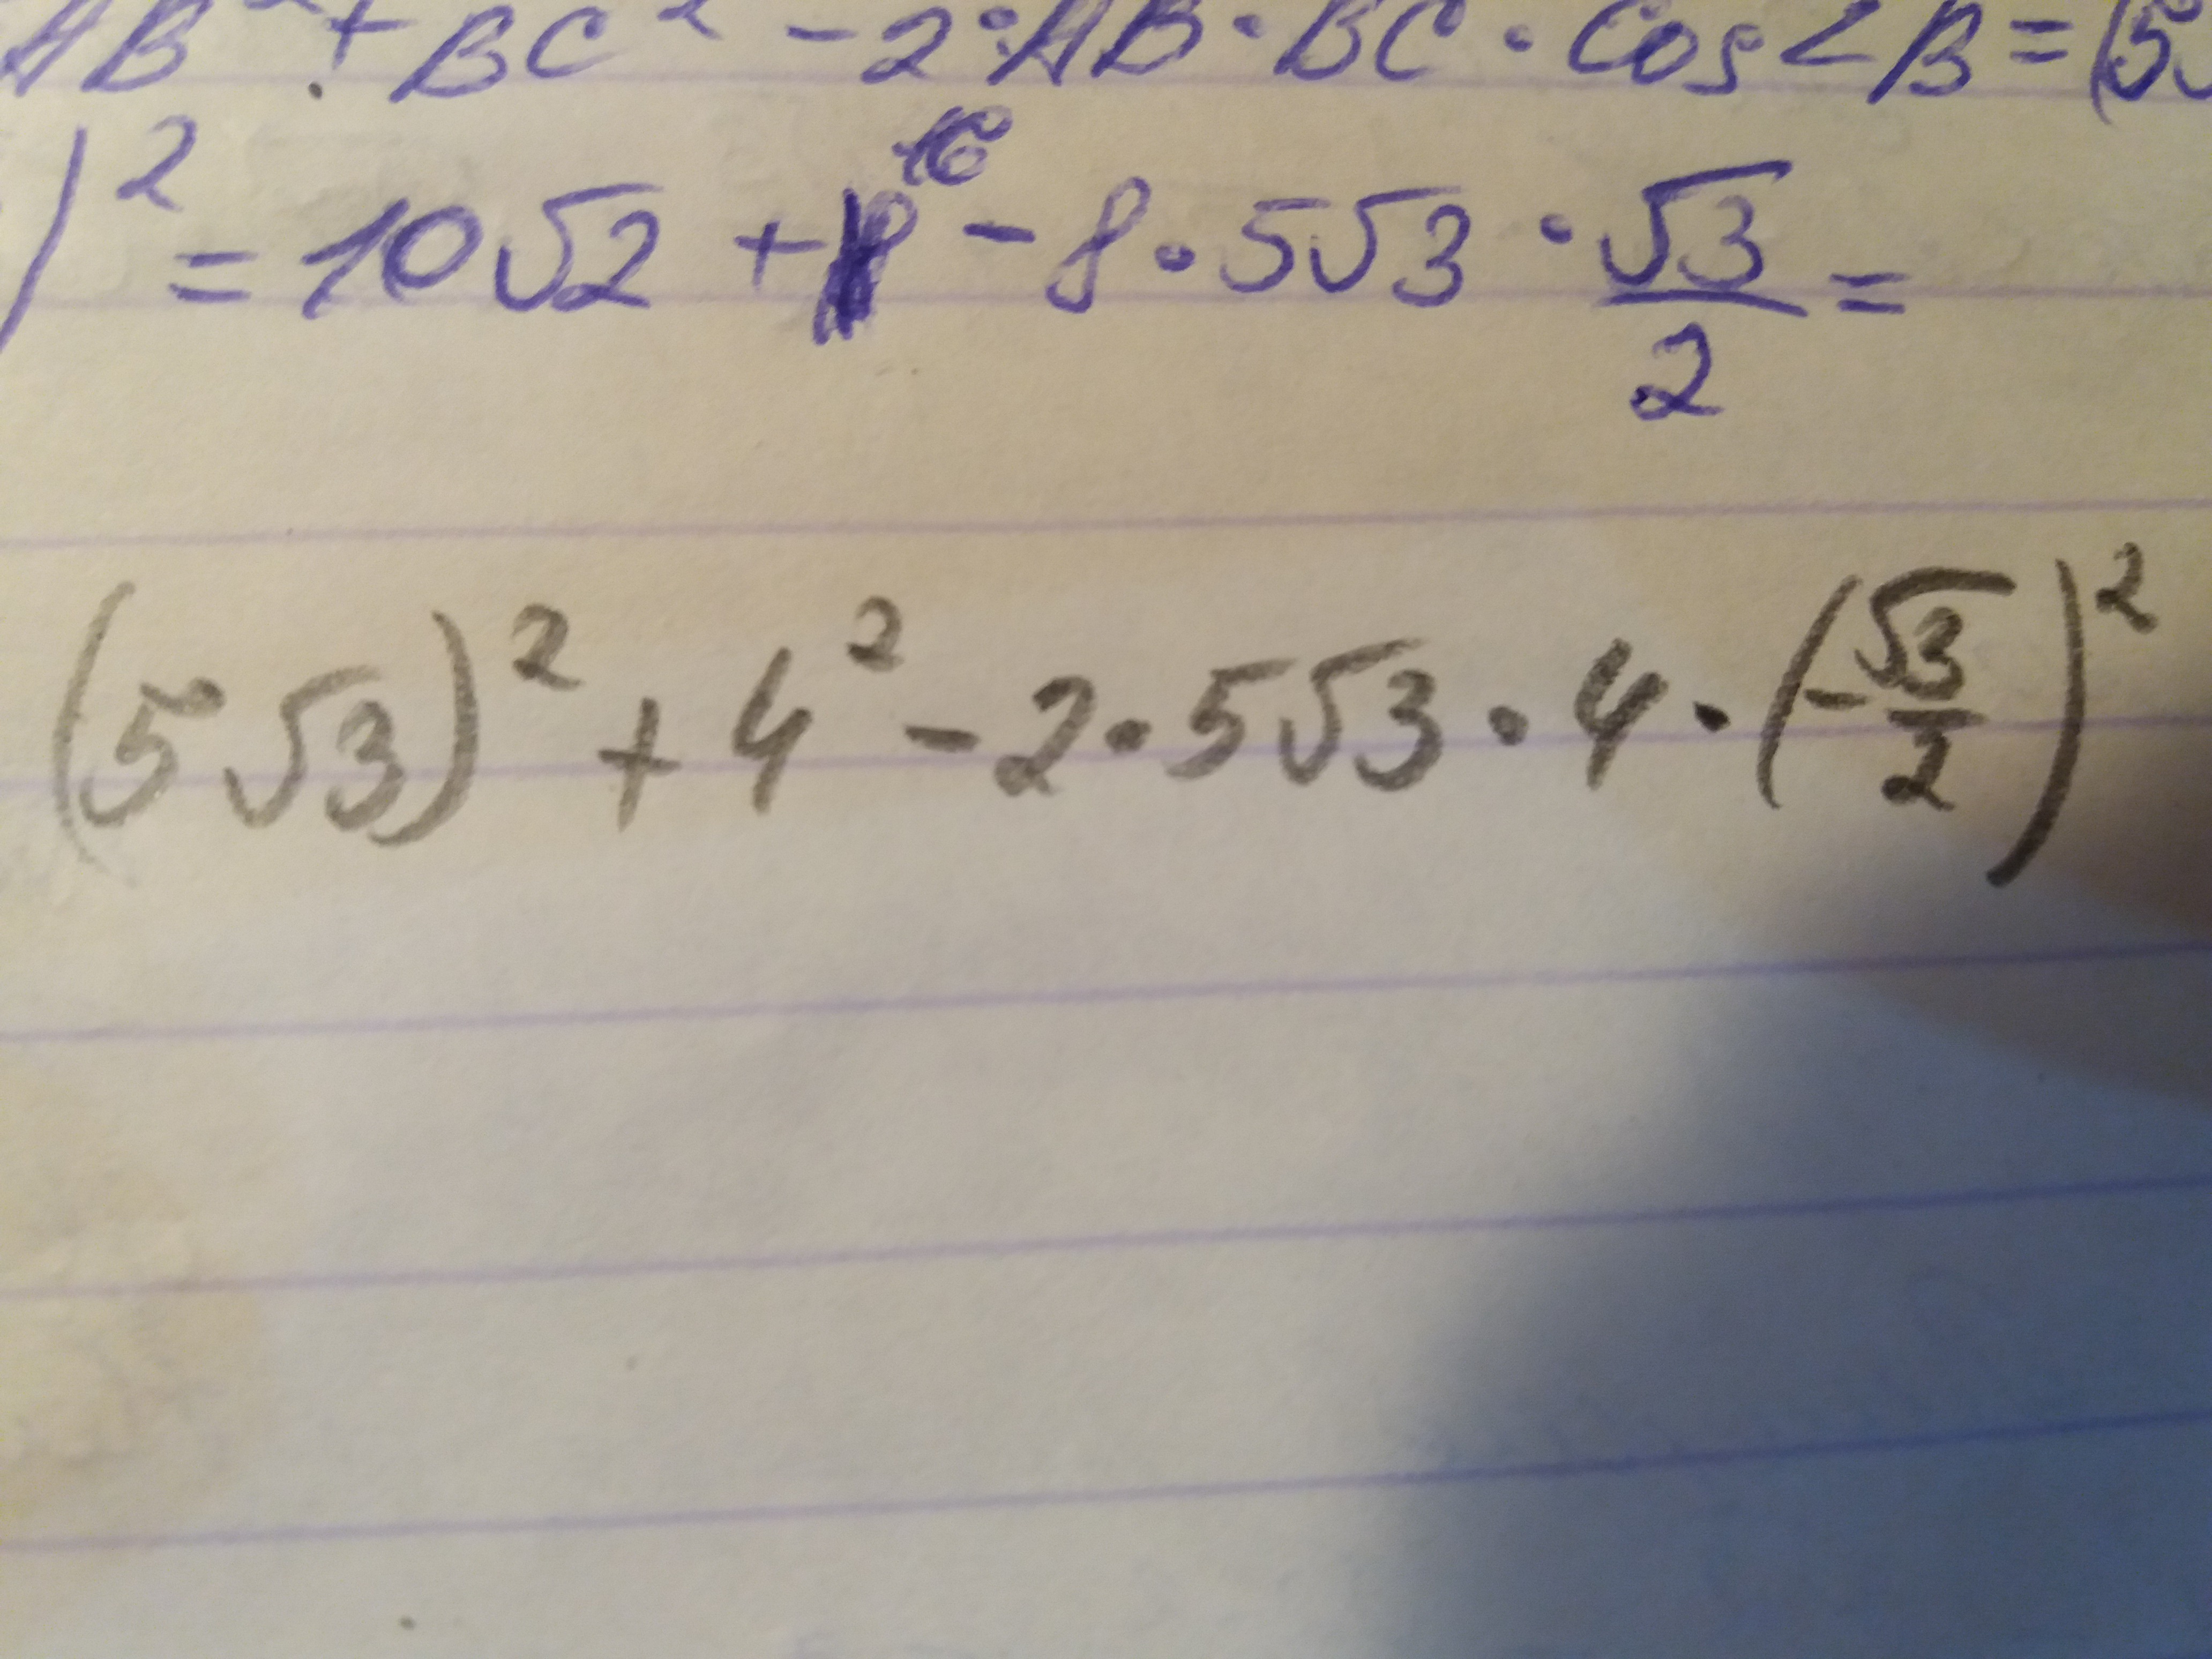 AB² + BC² - 2·AB·BC·cos∠B=(5
)² = 10√2 + 16 - 8·5√3·√3/2 =
(5√3)² + 4² - 2·5√3·4·(-√3/2)²